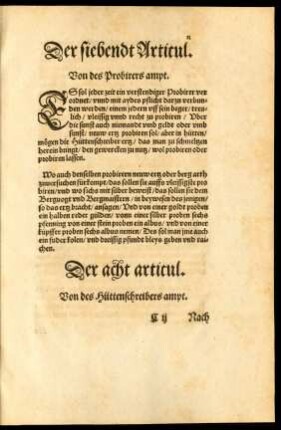 Der siebendt Articul.
Von des Probirers ampt.
ES sol jeder zeit ein verstendiger Probirer ver
ordnet / vnnd mit aydes pflicht darzu verbun
den werden / einem jedern vff sein beger / treu
lich / vleissig vnnd recht zu probiren / Vber
die sunst auch niemandt vmb geldt oder vmb
sunst / neuw ertz probiren sol / aber in hütten /
mögen die Hüttenschreiber ertz / das man zu schmeltzen
herein bringt / den gewercken zu nutz / wol probiren oder
probieren lassen.
Wo auch denselben probirern neuw ertz oder berg arth
zuuersuchen für kompt / das sollen sie auffs vleissigiste pro
biren / vnd wo sichs mit silber beweist / das sollen sie dem
Bergvogt vnd Bergmaistern / in beywesen des jenigen /
so das ertz bracht / ansagen / Vnd von einer güldt proben
ein halben reder gülden / vonn einer silber proben sechs
pfenning von einer stein proben ein albus / vnd von einer
kupffer proben sechs albus nemen / Des sol man jme auch
ein fuder kolen / vnd dreissig pfundt bleyu geben vnd rai-
chen.
Der acht articul.
Von des Hüttenschreibers ampt.
C ij Nach